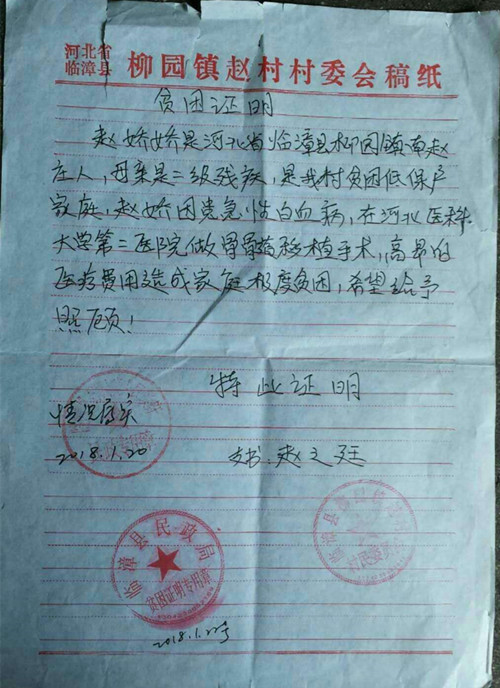 河北省
临漳县
柳园镇赵村村委会稿纸
贫困证明
赵娇娇是河北省临漳县柳园镇南赵
庄人，母亲是二级残疾，是我村贫困低保户
家庭，赵娇因患急性白血病，在河北医科
大学第二医院做骨骨髓移植手术，高昂的
医疗费用造成家庭极度贫困，希望给予
照顾！
特此证明
情况属实
2018.1.20
支书：赵之廷
临漳县民政局
贫困证明专用章
2018.1.22号